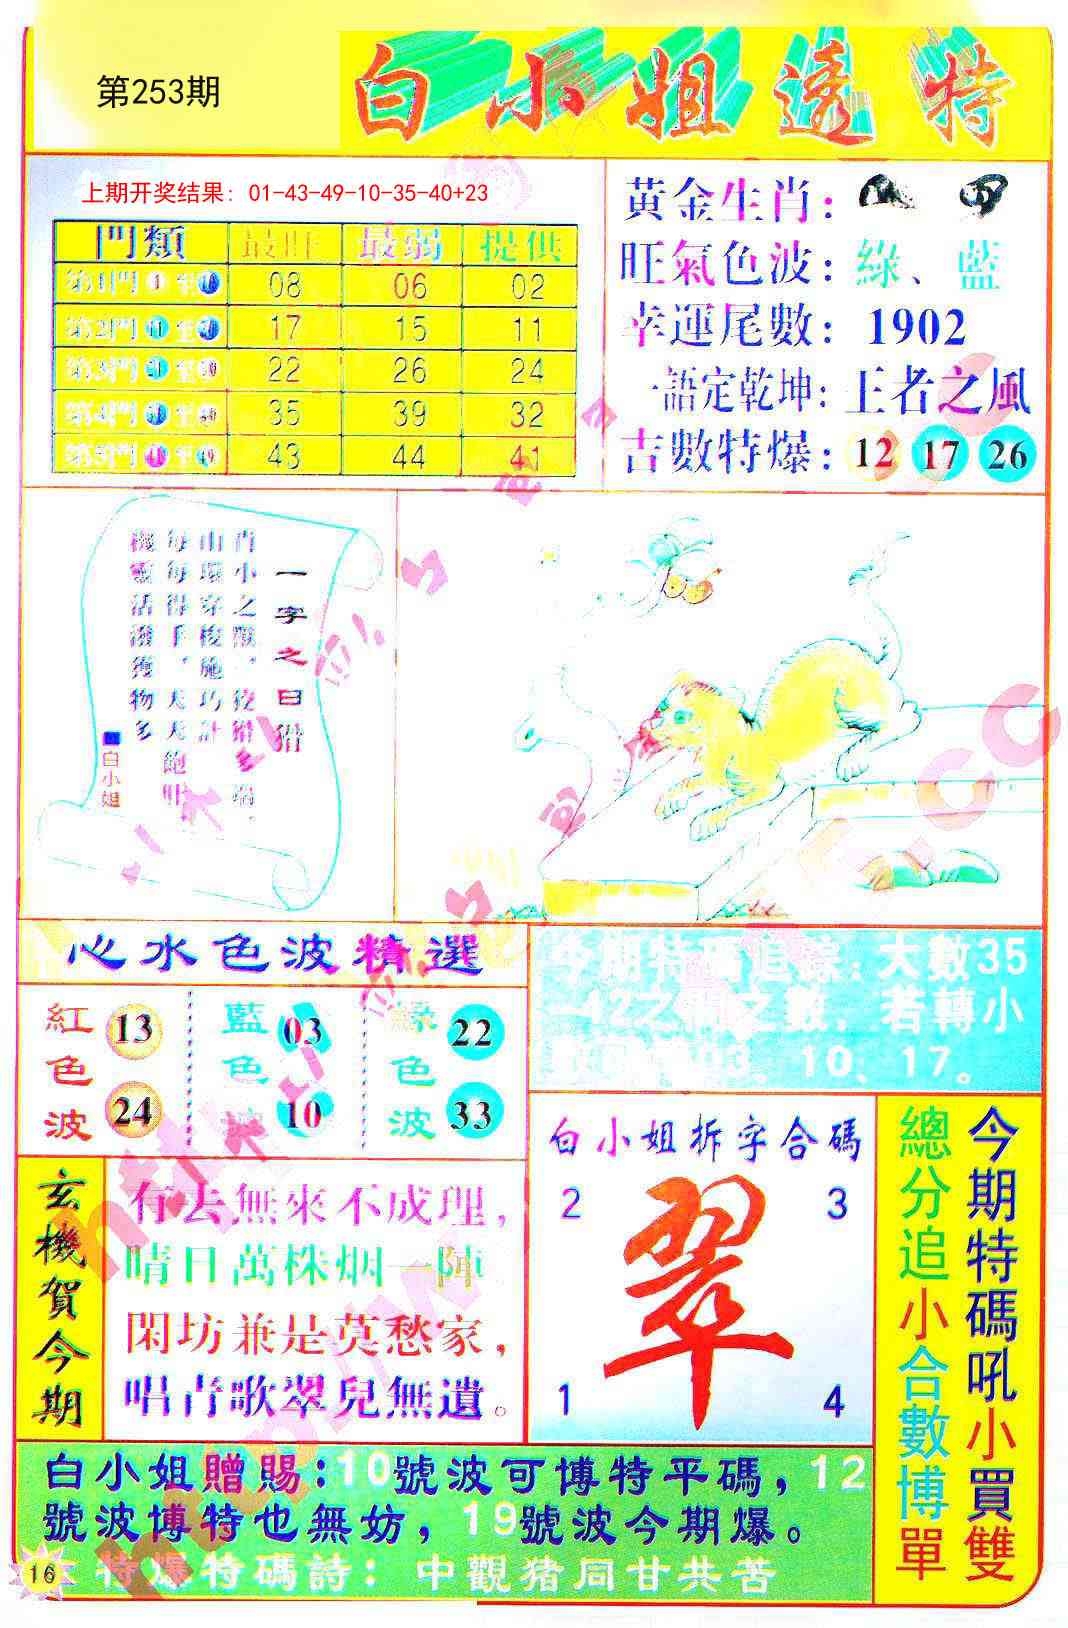 第253期
白小姐透特
上期开奖结果：01-43-49-10-35-40+23
門類 最旺 最弱 提供
第1門 1 至 10 08 06 02
第2門 11 至 20 17 15 11
第3門 21 至 30 22 26 24
第4門 31 至 40 35 39 32
第5門 41 至 49 43 44 41
黃金生肖：
旺氣色波：綠、藍
幸運尾數：1902
一語定乾坤：王者之風
吉數特爆：12 17 26
一字之曰猾
肖小之獸，狡猾多端，
山環穿梭施巧計
每每得手，天天飽肚
機靈活潑獲物多
白小姐
心水色波精選
紅色波 13 24
藍色波 03 10
綠色波 22 33
今期特碼追踪：大數35
42之間之數，若轉小
03、10、17。
玄機賀今期
有去無來不成理，
晴日萬株烟一陣
閑坊兼是莫愁家，
唱青歌翠兒無遺。
白小姐拆字合碼
2 3
翠
1 4
今期特碼吼小買雙
總分追小合數博單
白小姐贈賜：10號波可博特平碼，12
號波博特也無妨，19號波今期爆。
特爆特碼詩：中觀猪同甘共苦
16